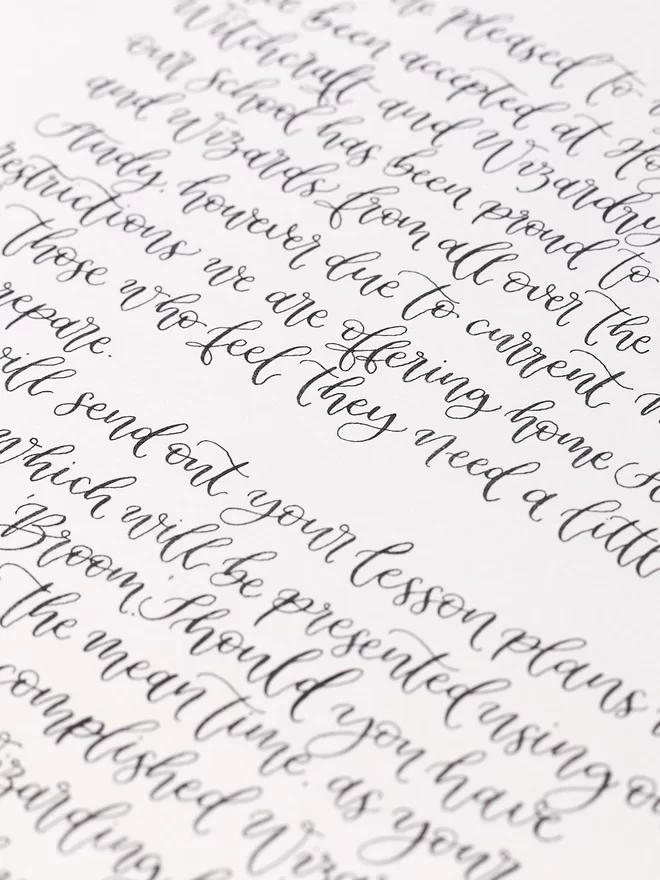 pleased to
been accepted at Ho
Witchcraft and Wizardry
our school has been proud to
and Wizards from all over the
study. however due to current
restrictions we are offering home st
those who feel they need a littl
repare.
will send out your lesson plans
which will be presented using ou
'Broom'. Should you have
the mean time. as your
complished Wizar
izarding